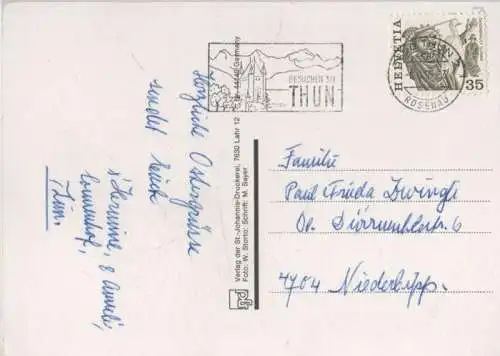 Herzliche Ostergrüsse
sendet Euch
s'Hermine, &
Sonnenhof,
Thun.
Verlag der St.-Johannis-Druckerei, 7630 Lahr 12
Foto: W. Storto; Schrift: M. Bayer
Germany
BESUCHEN SIE
THUN
ROSENAU
HELVETIA
35
Familie
Paul Frieda Zwingli
6
4704 Niederbipp.